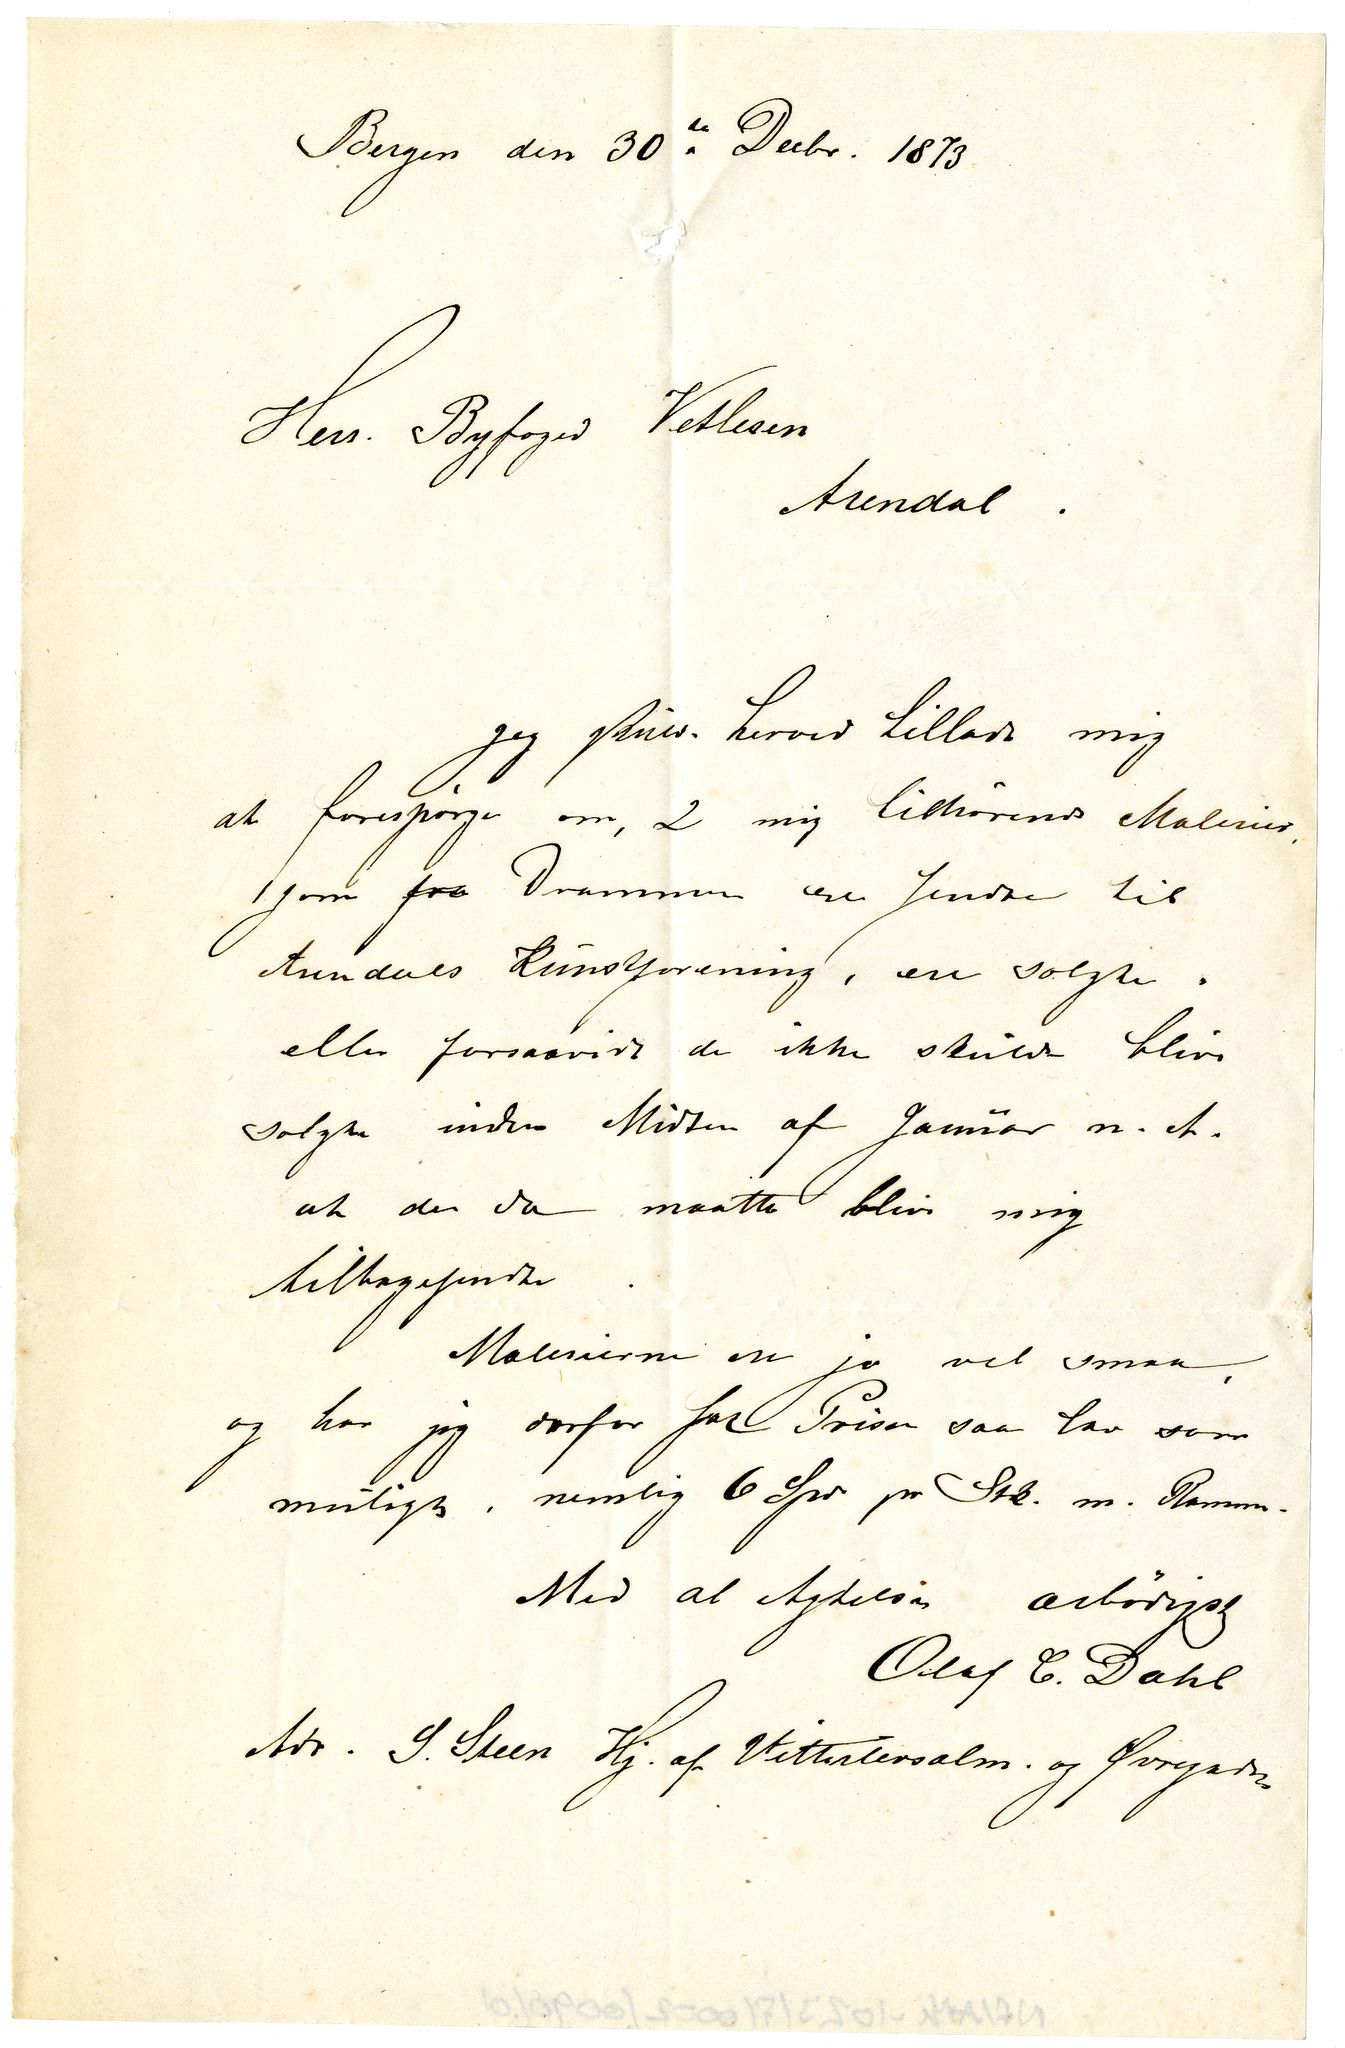 Bergen den 30te Decbr. 1873
Herr. Byfoged Vetlesen
Arendal.
Jeg skuld. herved tillade mig
at forespörge om, 2 mig tilhörende Malerier,
som fra Drammen ere sendte til
Arendals Kunstforening, ere solgte.
eller forsaavidt de ikke skulde blive
solgte inden Midten af Januar n. A.
at de da maatte blive mig
tilbagesendte.
Malerierne ere jo vel smaa,
og har jeg derfor sat Prisen saa lav som
muligt, nemlig 6 Spd pr Stk. m. Ramme.
Med al Agtelse ærbödigst
Olaf C. Dahl
Adr. S. Steen Hj. af Vitterlevsalm. og Øvregaden